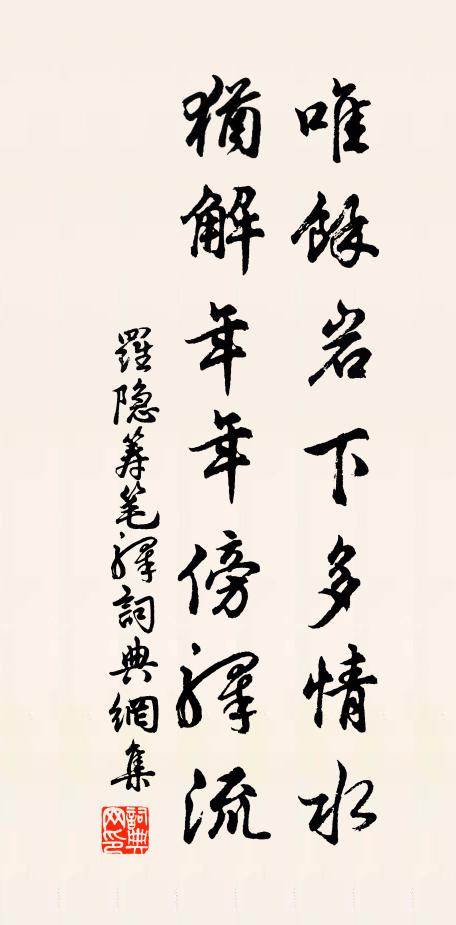 唯餘岩下多情水
猶解年年傍驛流
羅隐筹笔驛詞典網集
詞典網印